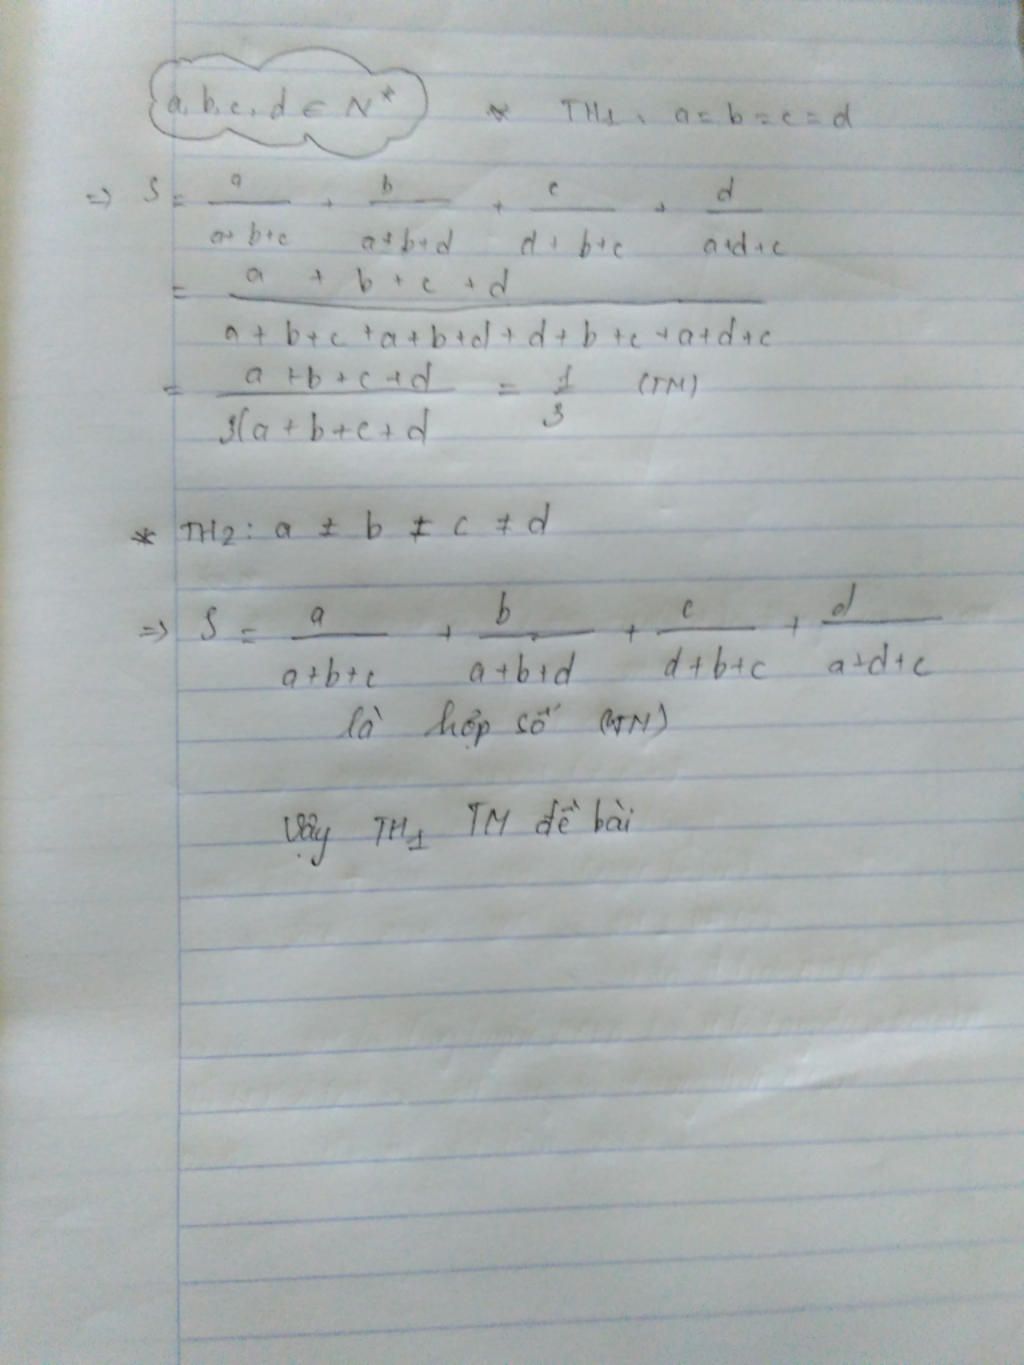 a, b, c, d ∈ N* * TH1: a = b = c = d
=> S = a/(a+b+c) + b/(a+b+d) + c/(d+b+c) + d/(a+d+c)
= (a + b + c + d)/(a + b + c + a + b + d + d + b + c + a + d + c)
= (a + b + c + d)/(3(a + b + c + d) = 1/3 (TM)
* TH2: a ≠ b ≠ c ≠ d
=> S = a/(a+b+c) + b/(a+b+d) + c/(d+b+c) + d/(a+d+c)
là hợp số
Vậy TH1 TM đề bài